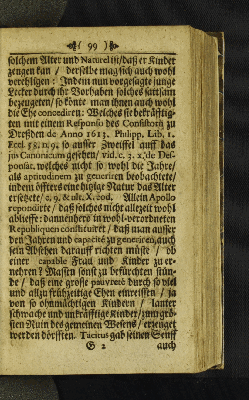 ( 99 )
solchem Alter und Naturel ist/daß er Kinder
zeugen kan / derselbe mag sich auch wohl
verehligen: Indem nun vorgesagte junge
Lecker durch ihr Vorhaben solches sattsam
bezeugeten/so könte man ihnen auch wohl
die Ehe concediren: Welches sie bekräfftig-
ten mit einem Responso des Consistorij zu
Dreßden de Anno 1613. Philipp. Lib. 1.
Eccl. 58. n. 9. so ausser Zweiffel auff das
jus Canonicum gesehen/ vid. c. 3. x. de De-
sponsat. welches nicht so wohl die Jahre/
als aptitudinem zu generiren beobachtete/
indem öffters eine hitzige Natur das Alter
ersetzete/ c. 9. & ult. X. eod. Allein Apollo
repondirte / daß solches nicht allezeit wohl
ablieffe: dannenhero in wohl-verordneten
Republiquen constituiret / daß man ausser
den Jahren und capacité zu generiren, auch
sein Absehen darauff richten müste / ob
einer capable Frau und Kinder zu er-
nehren? Massen sonst zu befürchten stün-
de / daß eine große pauvreté durch so viel
und allzu frühzeitige Ehen einreissen / ja
von so ohnmächtigen Kindern / lauter
schwache und unkräfftige Kinder/ zum grö-
sten Ruin des gemeinen Wesens/ erzeuget
werden dörfften. Tacitus gab seinen Senff
G 2 auch